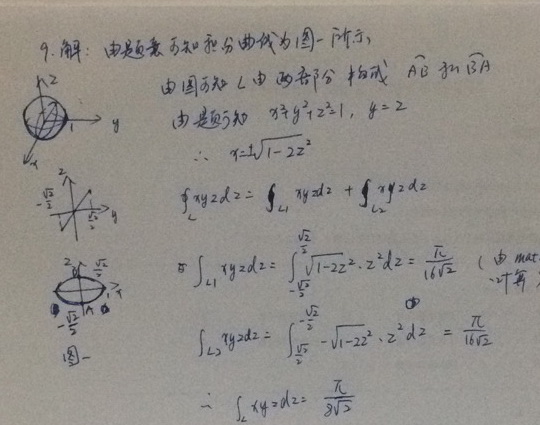 9. 解: 由题意可知积分曲线为图一所示,
由图可知 L 由两部分构成 AB 和 BA
由题可知 x²+y²+z²=1, y=z
∴ x=±√(1-2z²)
∮_L xyzdz = ∫_L1 xyzdz + ∫_L2 xyzdz
∫_L1 xyzdz = ∫_{-√2/2}^{√2/2} √(1-2z²)·z²dz = π/(16√2) (由mat
计算
∫_L2 xyzdz = ∫_{√2/2}^{-√2/2} -√(1-2z²)·z²dz = π/(16√2)
∴ ∫_L xyzdz = π/(8√2)
z
y
1
x
z
-√2/2
√2/2
y
z
B
√2/2
1
x
A
-√2/2
图一